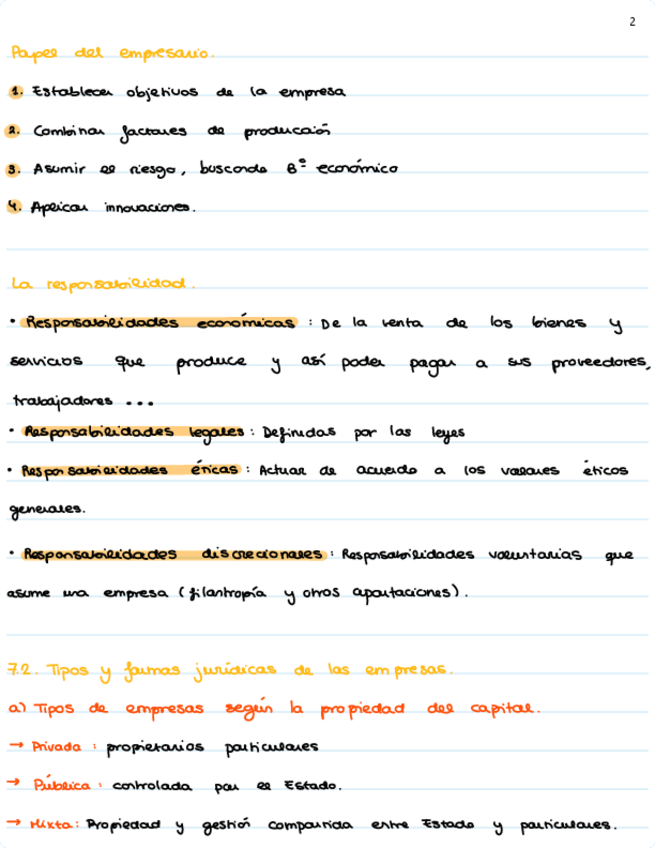 2
Papel del empresario.
1. Establecer objetivos de la empresa
2. Combinar factores de producción
3. Asumir el riesgo, buscando Bº económico
4. Aplicar innovaciones.
La responsabilidad.
• Responsabilidades económicas : De la venta de los bienes y
servicios que produce y así poder pagar a sus proveedores,
trabajadores ...
• Responsabilidades legales : Definidas por las leyes
• Responsabilidades éticas : Actuar de acuerdo a los valores éticos
generales.
• Responsabilidades discrecionales : Responsabilidades voluntarias que
asume una empresa (filantropía y otros aportaciones).
7.2. Tipos y formas jurídicas de las empresas.
a) Tipos de empresas según la propiedad del capital.
→ Privada : propietarios particulares
→ Pública : controlada por el Estado.
→ Mixta : Propiedad y gestión compartida entre Estado y particulares.